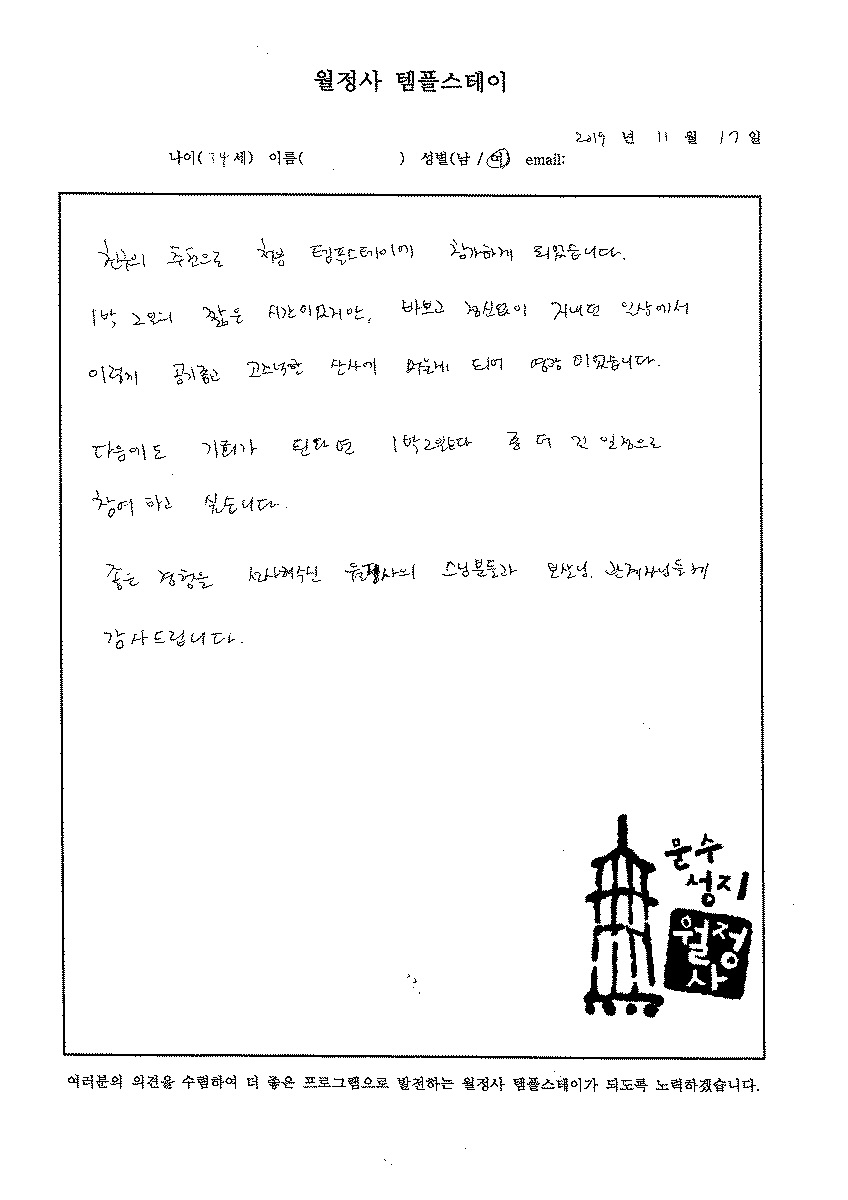 월정사 템플스테이
2019 년 11 월 17 일
나이(34세) 이름( ) 성별(남 / 여) email:
친구의 추천으로 처음 템플스테이에 참가하게 되었습니다.
1박 2일의 짧은 시간이었지만, 바쁘고 정신없이 지내던 일상에서
이렇게 공기좋고 고즈넉한 산사에 머물게 되어 영광 이었습니다.
다음에도 기회가 된다면 1박2일보다 좀 더 긴 일정으로
참여 하고 싶습니다.
좋은 경험을 선사해주신 월정사의 스님분들과 보살님, 관계자님들께
감사드립니다.
문수
성지
월정
사
여러분의 의견을 수렴하여 더 좋은 프로그램으로 발전하는 월정사 템플스테이가 되도록 노력하겠습니다.